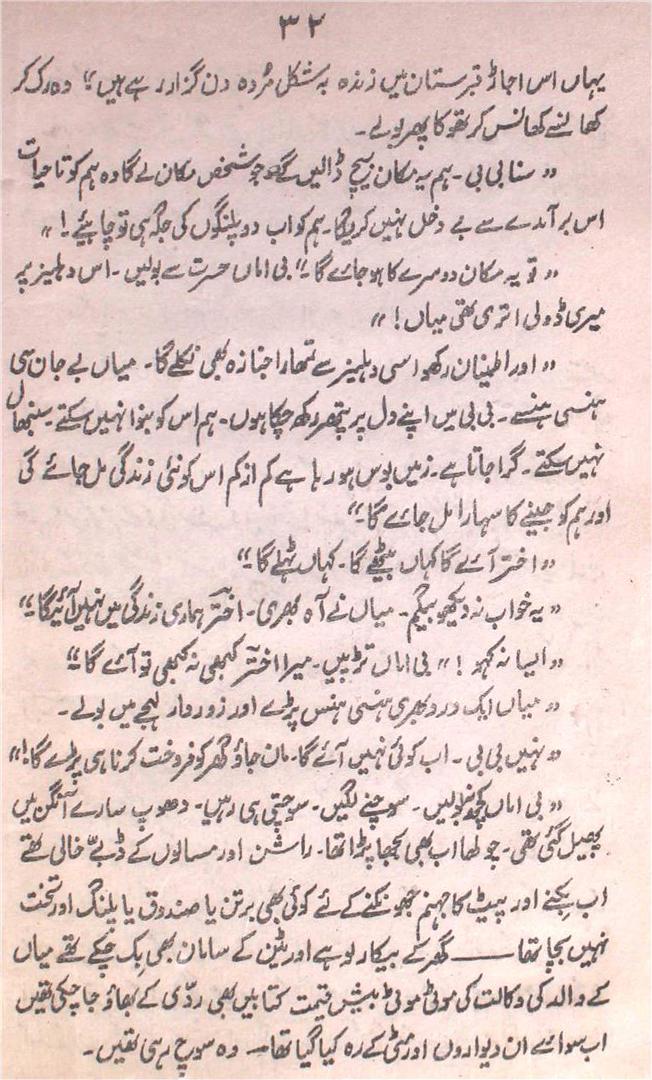 ۳۲
یہاں اس اجاڑ قبرستان میں زندہ بہ شکل مُردہ دن گزار رہے ہیں“ وہ رک کر
کھانسے کھانس کر تھوکا پھر بولے۔
”سنا بی بی۔ ہم یہ مکان بیچ ڈالیں گے جو شخص مکان لے گا وہ ہم کو تا حیات
اس برآمدے سے بے دخل نہیں کریگا۔ ہم کو اب دو پلنگوں کی جگہ ہی تو چاہیئے۔!“
”تو یہ مکان دوسرے کا ہو جائے گا۔“ بی اماں حسرت سے بولیں۔ اس دہلیز پر
میری ڈولی اتری تھی میاں!“
”اور اطمینان رکھو اسی دہلیز سے تمھارا جنازہ بھی نکلے گا۔ میاں بے جان سی
ہنسی ہنسے۔ بی بی میں اپنے دل پر پتھر رکھ چکا ہوں۔ ہم اس کو بنوا نہیں سکتے۔ سنبھال
نہیں سکتے۔ گرا جاتا ہے۔ زمیں بوس ہو رہا ہے کم از کم اس کو نئی زندگی مل جائے گی
اور ہم کو جینے کا سہارا مل جائے گا۔“
”اختر آئے گا کہاں بیٹھے گا۔ کہاں ٹہلے گا۔“
”یہ خواب نہ دیکھو بیگم۔ میاں نے آہ بھری۔ اختر ہماری زندگی میں نہیں آئیگا۔“
”ایسا نہ کہو!“ بی اماں تڑپیں۔ میرا اختر کبھی نہ کبھی تو آئے گا۔“
”میاں ایک درد بھری ہنسی ہنس پڑے اور زوردار لہجے میں بولے۔
”نہیں بی بی۔ اب کوئی نہیں آئے گا۔ مان جاؤ گھر کو فروخت کرنا ہی پڑے گا!“
”بی اماں کچھ نہ بولیں۔ سوچنے لگیں۔ سوچتی ہی رہیں۔ دھوپ سارے آنگن میں
پھیل گئی تھی۔ چولھا اب بھی بجھا پڑا تھا۔ راشن اور مسالوں کے ڈبے خالی تھے
اب بِکنے اور پیٹ کا جہنم جھونکنے کے لئے کوئی بھی برتن یا صندوق یا پلنگ اور تخت
نہیں بچا تھا —— گھر کے بیکار لوہے اور ٹین کے سامان بھی بِک چکے تھے میاں
کے والد کی وکالت کی موٹی موٹی بیش قیمت کتابیں بھی ردّی کے بھاؤ جا چکی تھیں
اب سوائے ان دیواروں اور مٹی کے رہ کیا گیا تھا— وہ سوچ رہی تھیں۔